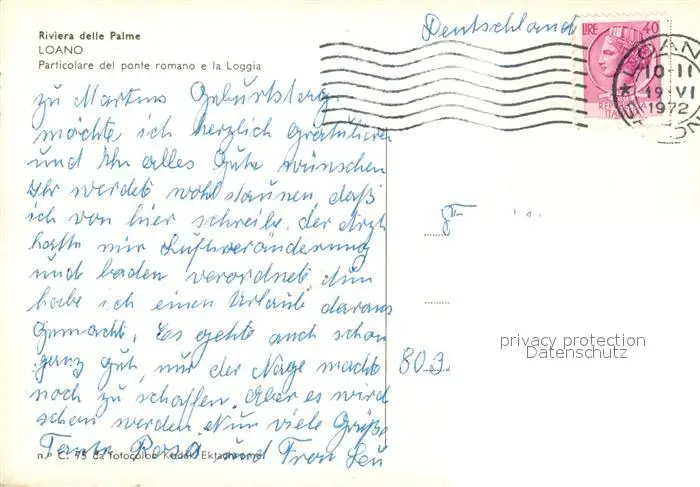 Riviera delle Palme
LOANO
Particolare del ponte romano e la Loggia
Deutschland
LIRE 40
LOANO
10-11
19 VI
1972
zu Martins Geburtstag
möchte ich herzlich gratulieren
und Ihn alles Gute wünschen
Ihr werdet wohl staunen, daß
ich von hier schreibe. der Arzt
hatte mir Luftveränderung
und baden verordnet Nun
habe ich einen Urlaub daraus
gemacht. Es geht auch schon
ganz gut, nur der Nage macht
noch zu schaffen. Aber es wird
schon werden. Nun viele Grüße
Tante Rosa und Frau Leu
803
privacy protection
Datenschutz
n.° C. 75 da fotocolor Kodak Ektachrome